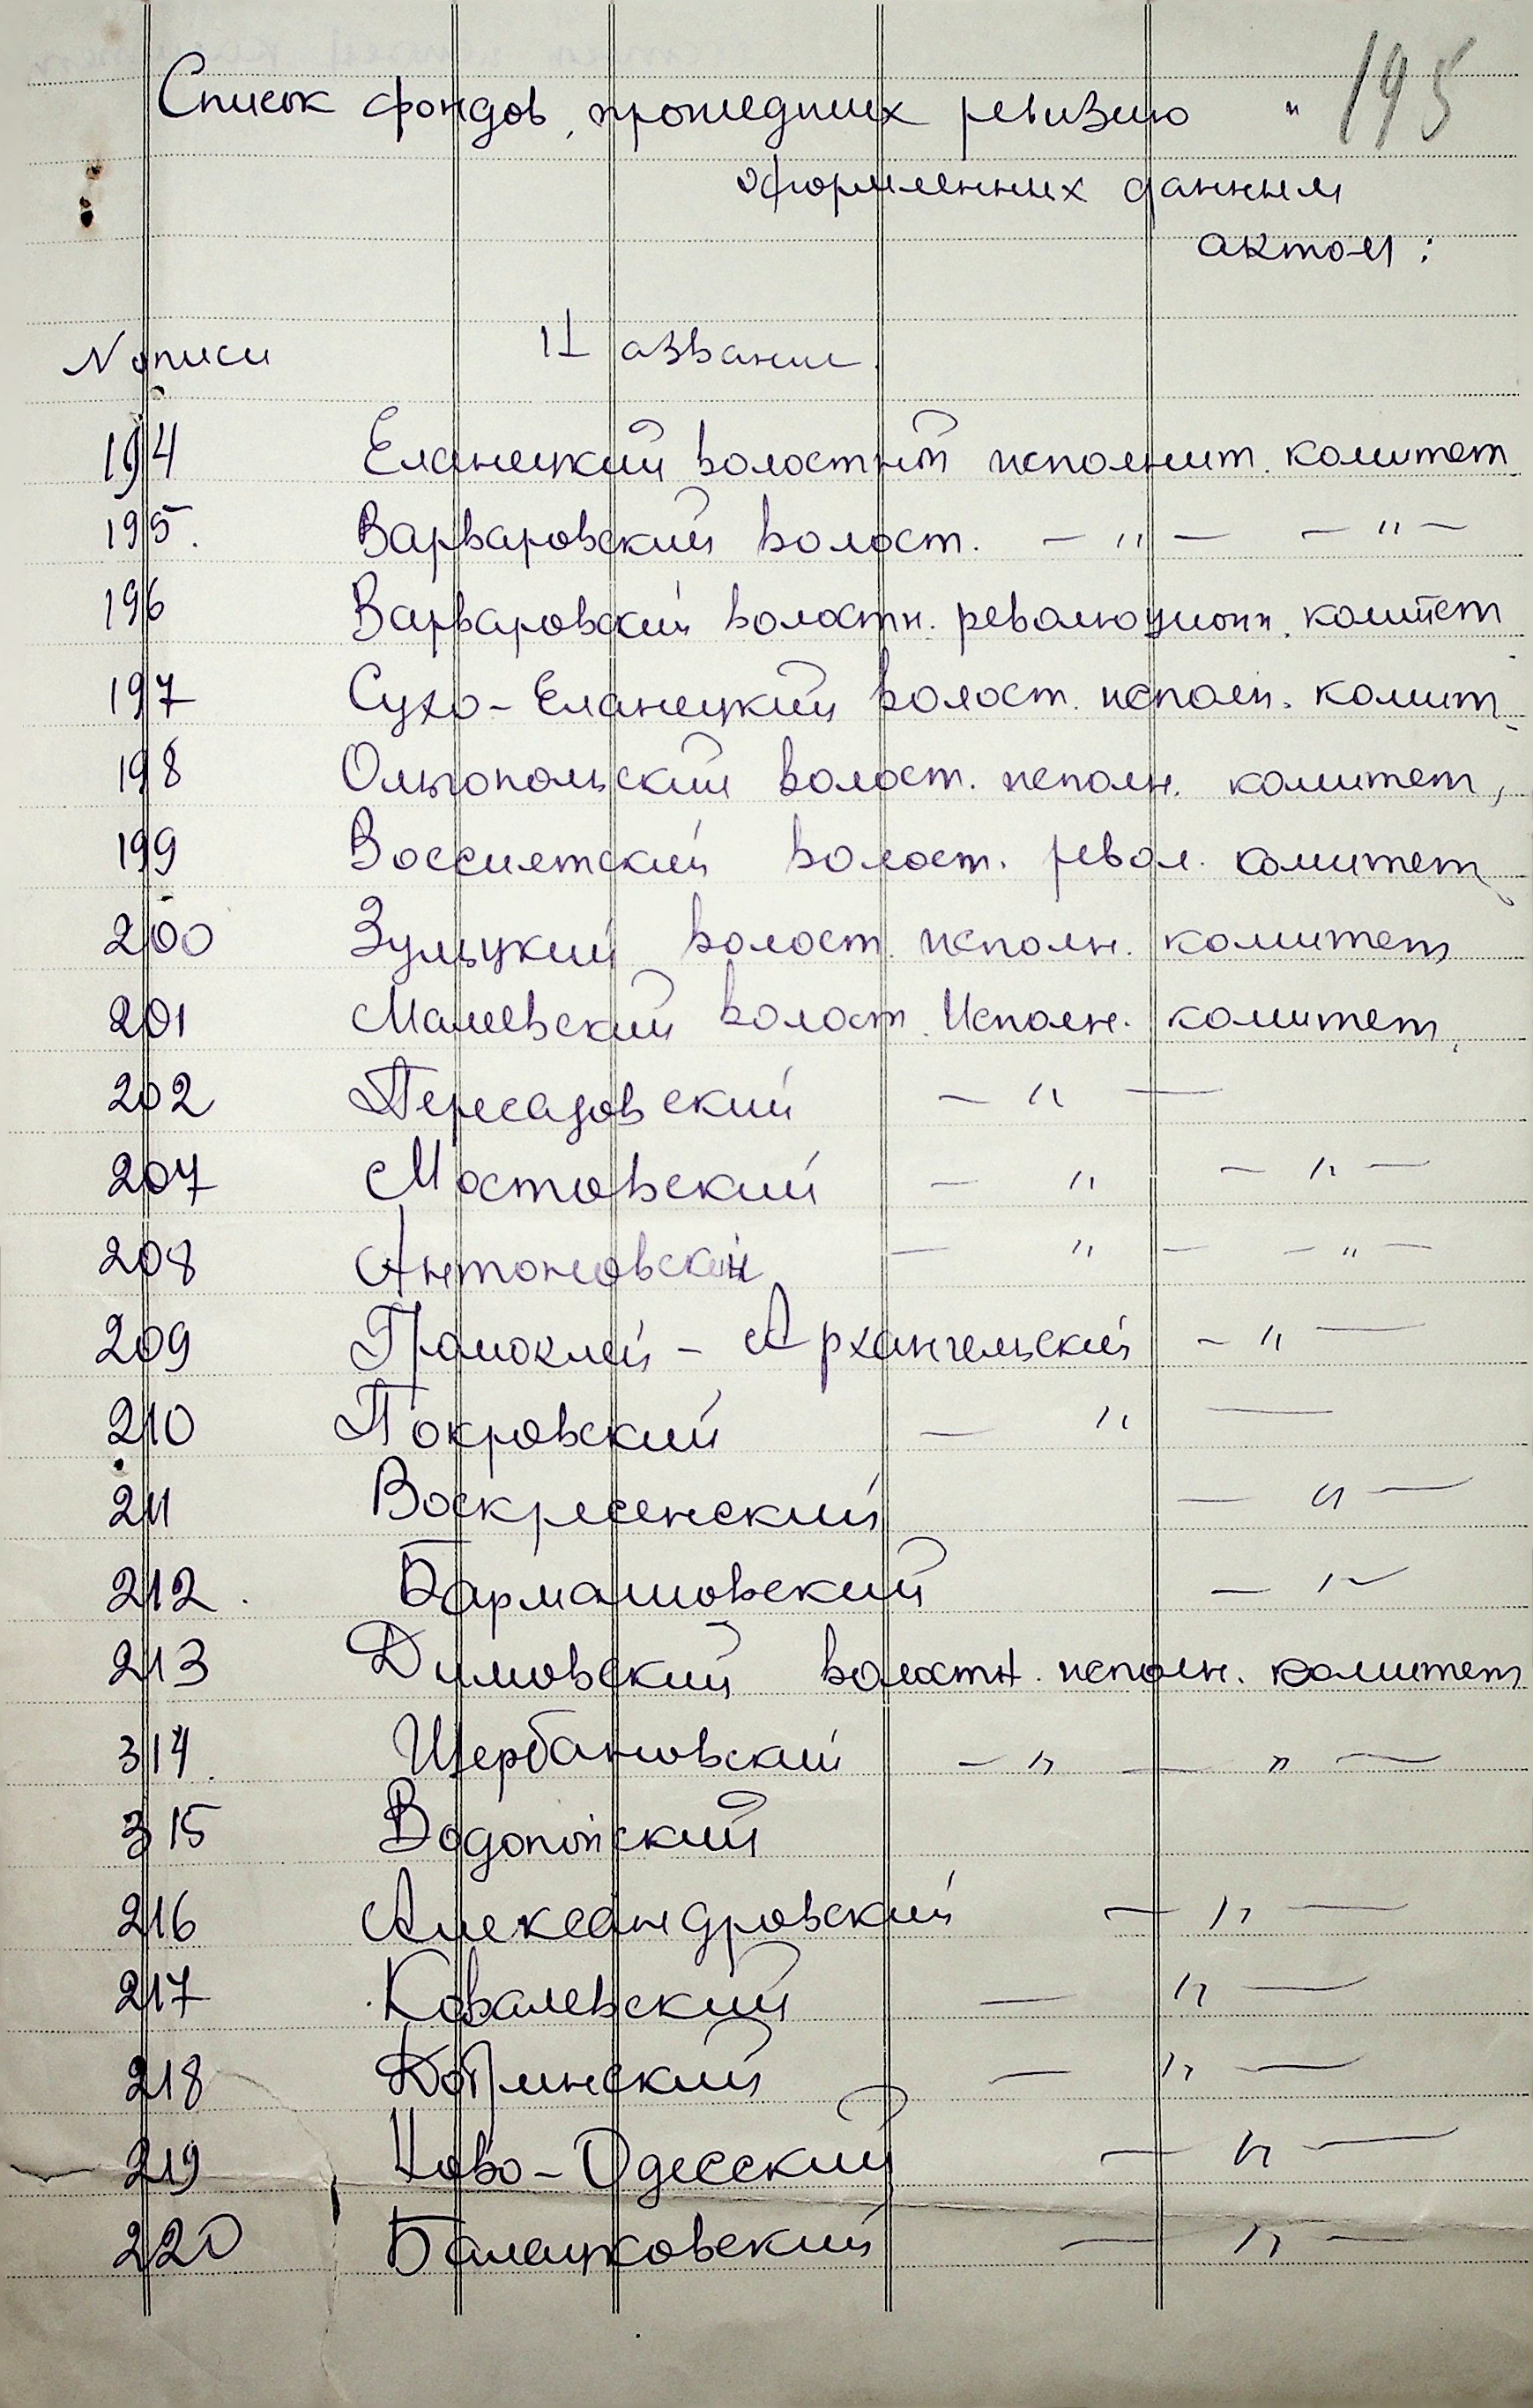 195
Список фондов, прошедших ревизию "
оформленных данным
актом:
N описи Название
194 Еланецкий волостной исполнит. комитет
195. Варваровский волост. – " – – " –
196 Варваровский волостн. революционн. комитет
197 Сухо-Еланецкий волост. исполн. комит.
198 Ольгопольский волост. исполн. комитет,
199 Воссиятский волост.револ. комитет
200 Зульцкий волост. исполн. комитет
201 Малеевский волост. Исполн. комитет,
202 Пересадовский – " –
207 Мостовский – " – " –
208 Антоновский – " – – " –
209 Громоклей - Архангельский – " –
210 Покровский – " –
211 Воскресенский – " –
212. Бармашовский – " –
213 Димовский волостн. исполн. комитет
314. Щербановский – " – " –
315 Водопойский
216 Александровский – " –
217 Ковалевский – " –
218 – " –
219 Ново-Одесский – " –
220 Балацковский – " –